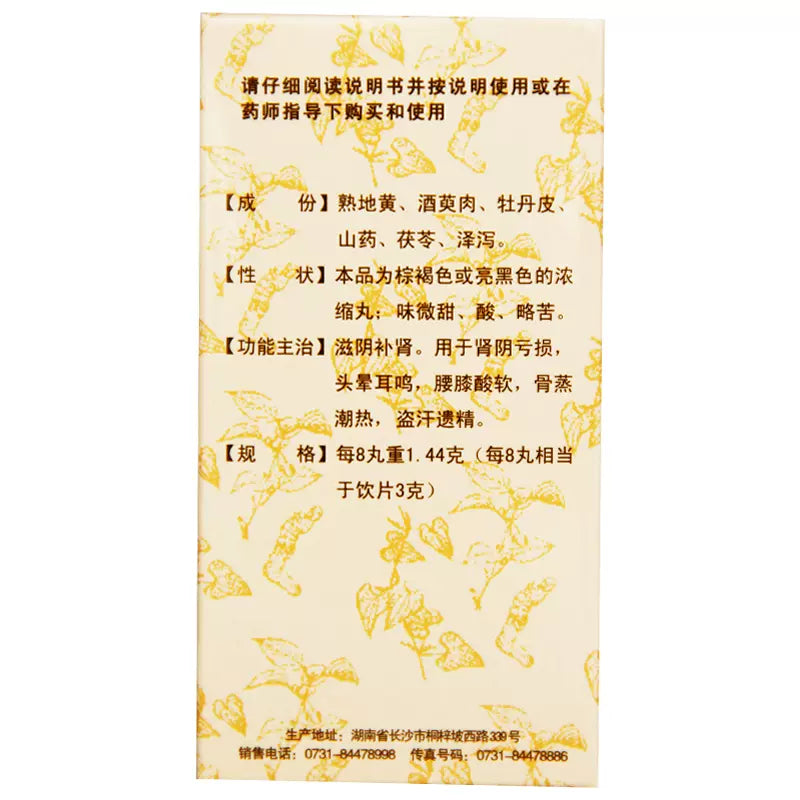 请仔细阅读说明书并按说明使用或在
药师指导下购买和使用
【成 份】熟地黄、酒萸肉、牡丹皮、
山药、茯苓、泽泻。
【性 状】本品为棕褐色或亮黑色的浓
缩丸；味微甜、酸、略苦。
【功能主治】滋阴补肾。用于肾阴亏损，
头晕耳鸣，腰膝酸软，骨蒸
潮热，盗汗遗精。
【规 格】每8丸重1.44克（每8丸相当
于饮片3克）
生产地址：湖南省长沙市桐梓坡西路339号
销售电话：0731-84478998 传真号码：0731-84478886